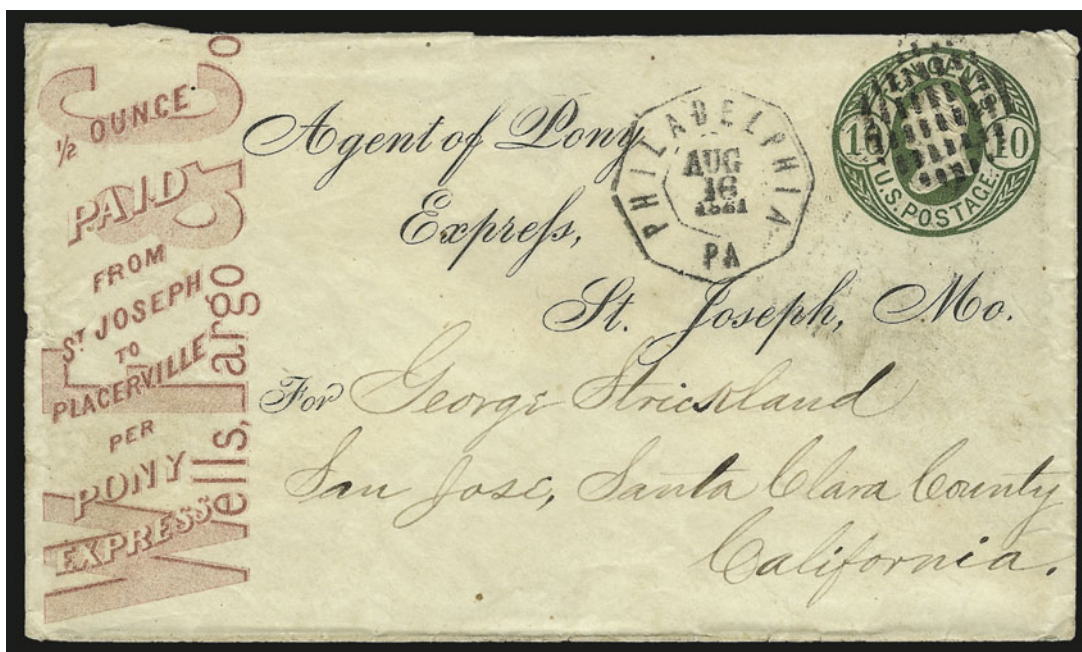 ½ OUNCE
PAID
FROM
ST JOSEPH
TO
PLACERVILLE
PER
PONY
EXPRESS
Wells, Fargo & Co
Agent of Pony
Expreſs,
St. Joseph, Mo.
For George Strickland
San Jose, Santa Clara County
California.
PHILADELPHIA
AUG
16
1861
PA
TEN CENTS
10 10
U.S. POSTAGE.